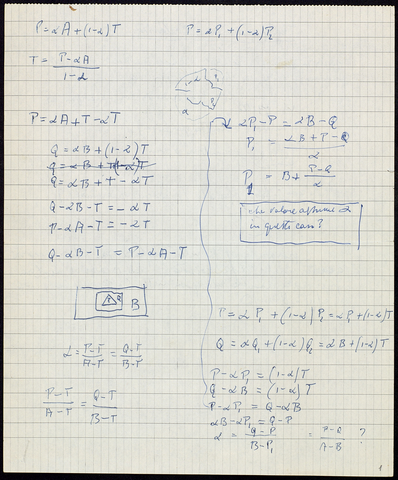 P = αA + (1-α)T
T = P-αA / 1-α
P = αA + T - αT
Q = αB + (1-α)T
Q = αB + T - αT
Q - αB - T = -αT
P - αA - T = -αT
Q - αB - T = P - αA - T
B
α = P-T / A-T = Q-T / B-T
P-T / A-T = Q-T / B-T
P = αP₁ + (1-α)P₂
αP₁ - P = αB - Q
P₁ = αB + P - Q / α
P₁ = B + P-Q / α
che valore assume α
in questo caso?
P = αP₁ + (1-α)P₂ = αP₁ + (1-α)T
Q = αQ₁ + (1-α)Q₂ = αB + (1-α)T
P - αP₁ = (1-α)T
Q - αB = (1-α)T
P - αP₁ = Q - αB
αB - αP₁ = Q - P
α = Q-P / B-P₁ = P-Q / A-B ?
1